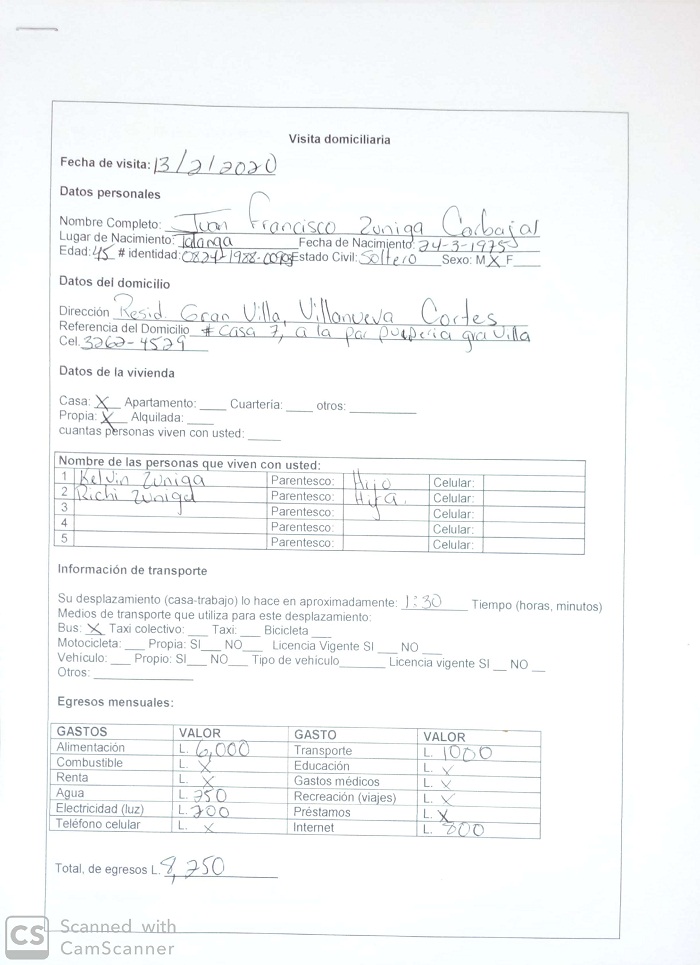 Visita domiciliaria
Fecha de visita: 13/2/2020
Datos personales
Nombre Completo: Juan Francisco Zuniga Carbajal
Lugar de Nacimiento: Talanga Fecha de Nacimiento: 24-3-1975
Edad: 45 # identidad: Estado Civil: Soltero Sexo: M X F ___
Datos del domicilio
Dirección Resid. Gran Villa, Villanueva Cortes
Referencia del Domicilio # Casa 7, a la par pulperia gra villa
Cel. 3262-4529
Datos de la vivienda
Casa: X Apartamento: ____ Cuartería: ____ otros: ____
Propia: X Alquilada: ____
cuantas personas viven con usted: ____
Nombre de las personas que viven con usted:
1 Kelvin Zuniga Parentesco: Hijo Celular:
2 Richi Zuniga Parentesco: Hija. Celular:
3 Parentesco: Celular:
4 Parentesco: Celular:
5 Parentesco: Celular:
Información de transporte
Su desplazamiento (casa-trabajo) lo hace en aproximadamente: 1:30 Tiempo (horas, minutos)
Medios de transporte que utiliza para este desplazamiento:
Bus: X Taxi colectivo: ___ Taxi: ___ Bicicleta ___
Motocicleta: ___ Propia: SI___ NO___ Licencia Vigente SI ___ NO ___
Vehículo: ___ Propio: SI___ NO___ Tipo de vehículo_______ Licencia vigente SI __ NO __
Otros: ____
Egresos mensuales:
GASTOS VALOR GASTO VALOR
Alimentación L. 6,000 Transporte L. 1000
Combustible L. X Educación L. X
Renta L. X Gastos médicos L. X
Agua L. 250 Recreación (viajes) L. X
Electricidad (luz) L. 700 Préstamos L. X
Teléfono celular L. X Internet L. 800
Total, de egresos L. 8,750
CS Scanned with
CamScanner